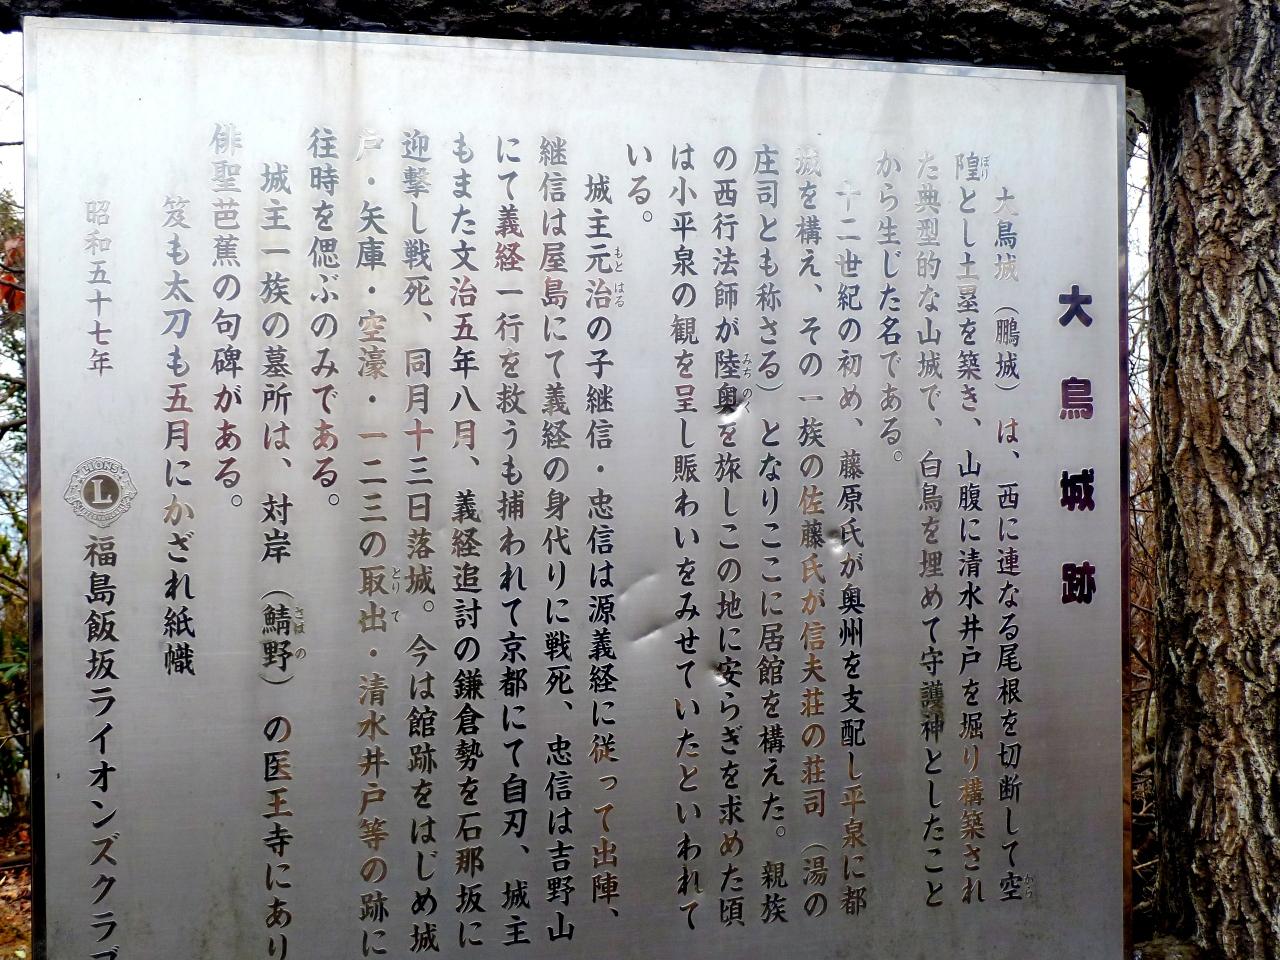 大鳥城跡
大鳥城（鵬城）は、西に連なる尾根を切断して空
隍とし土塁を築き、山腹に清水井戸を堀り構築され
た典型的な山城で、白鳥を埋めて守護神としたこと
から生じた名である。
十二世紀の初め、藤原氏が奥州を支配し平泉に都
城を構え、その一族の佐藤氏が信夫荘の荘司（湯の
庄司とも称さる）となりここに居館を構えた。親族
の西行法師が陸奥を旅しこの地に安らぎを求めた頃
は小平泉の観を呈し賑わいをみせていたといわれて
いる。
城主元治の子継信・忠信は源義経に従って出陣、
継信は屋島にて義経の身代りに戦死、忠信は吉野山
にて義経一行を救うも捕われて京都にて自刃、城主
もまた文治五年八月、義経追討の鎌倉勢を石那坂に
迎撃し戦死、同月十三日落城。今は館跡をはじめ城
戸・矢庫・空濠・一二三の取出・清水井戸等の跡に
往時を偲ぶのみである。
城主一族の墓所は、対岸（鯖野）の医王寺にあり
俳聖芭蕉の句碑がある。
笈も太刀も五月にかざれ紙幟
昭和五十七年
LIONS
L
INTERNATIONAL
福島飯坂ライオンズクラブ
から
ぼり
みちのく
もとはる
とりて
さばの